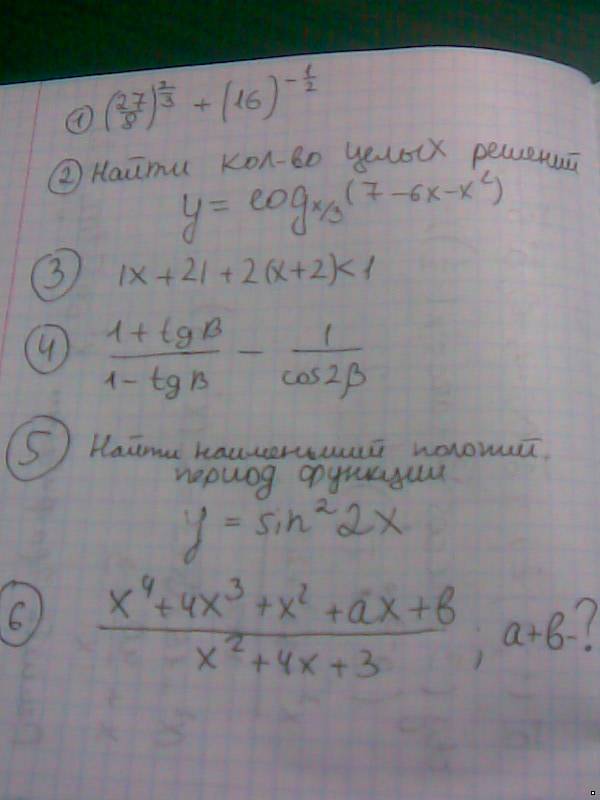 ① (27/8)^(2/3) + (16)^(-1/2)
② Найти кол-во целых решений
y = log_(x/3) (7 - 6x - x²)
③ |x + 2| + 2(x + 2) < 1
④ (1 + tgβ)/(1 - tgβ) - 1/(cos2β)
⑤ Найти наименьший положит.
период функции
y = sin² 2x
⑥ (x⁴ + 4x³ + x² + ax + b)/(x² + 4x + 3) ; a+b-?